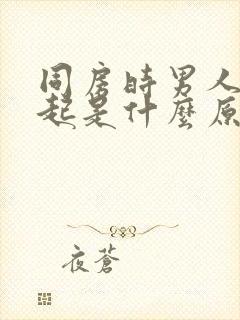 同房時男人
起是什麼原
夜蒼